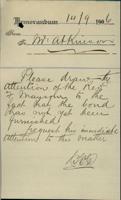 Memorandum 14/9 1906
From
To Mr Atkinson
Please draw the
attention of the Regr
of to the
fact that the bond
has not yet been
furnished
request his immediate
attention to this matter